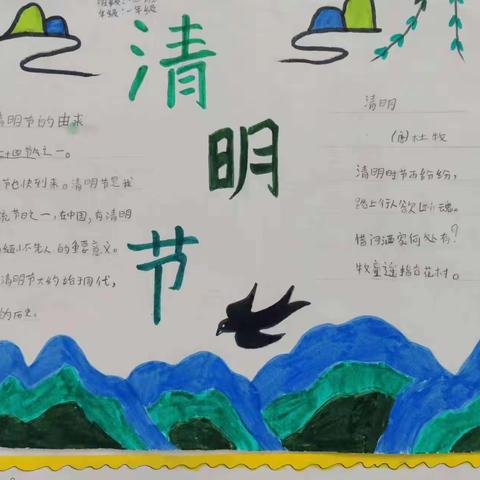 年级:一年级
清
明
节
清明节的由来
二十四节气之一。
节也快到来。清明节是我
统节日之一,在中国,有清明
缅怀先人的重要意义。
清明节大约始于周代,
的历史。
清明
(唐)杜牧
清明时节雨纷纷,
路上行人欲断魂。
借问酒家何处有?
牧童遥指杏花村。